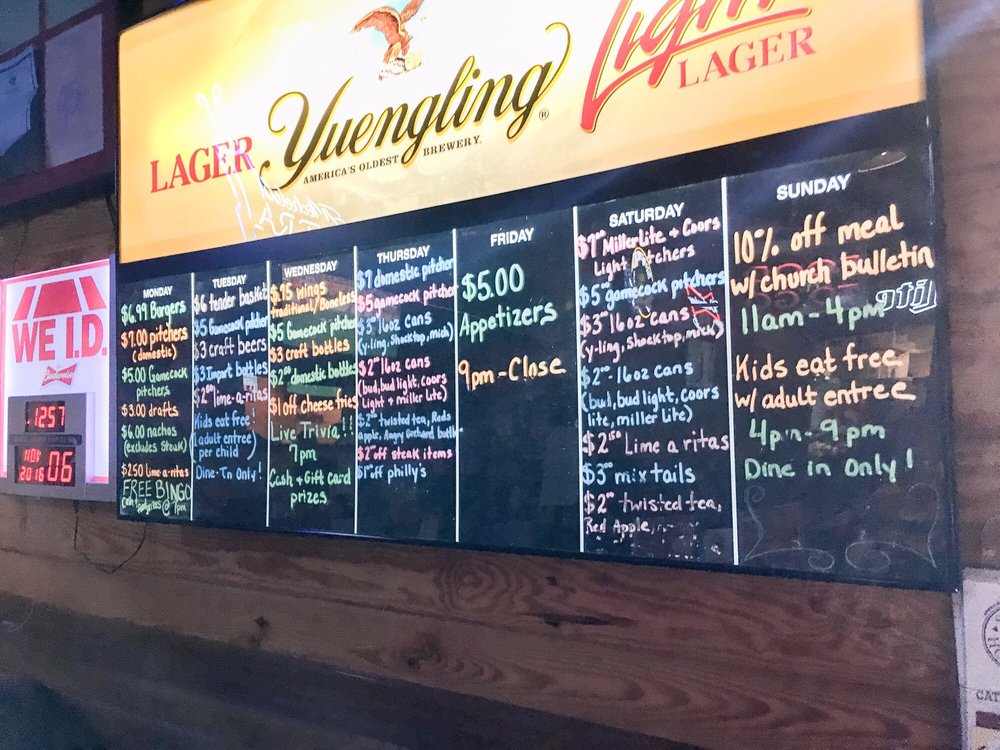 Light
LAGER
LAGER Yuengling®
AMERICA'S OLDEST BREWERY.
WE I.D.
Budweiser
12:57
NOV
2016 06
MONDAY
$6.99 Burgers
$7.00 pitchers
(domestic)
$5.00 Gamecock
pitchers
$3.00 drafts
$6.00 nachos
(excludes steak)
$2.50 lime-a-ritas
FREE BINGO
7pm
TUESDAY
$6 tender basket
$5 Gamecock pitcher
$3 craft beers
$3 Import bottles
$2 lime-a-ritas
Kids eat free
(1 adult entree)
per child
Dine-In only!
WEDNESDAY
$.75 wings
traditional/Boneless
$5 Gamecock pitcher
$3 craft bottles
$2 domestic bottles
$1 off cheese fries
Live Trivia!!
7pm
Cash + Gift card
prizes
THURSDAY
$7 domestic pitcher
$5 gamecock pitcher
$3 16oz cans
(y-ling, shocktop, mich)
$2 16oz cans
(bud, bud light, coors
Light + miller lite)
$2 twisted tea, Reds
apple, Angry Orchard
$2 off steak items
$1 off philly's
FRIDAY
$5.00
Appetizers
9pm-Close
SATURDAY
$7 Miller lite + Coors
Light Pitchers
$5 gamecock pitchers
$3 16oz cans
(y-ling, shocktop, mich)
$2 -16oz cans
(bud, bud light, coors
lite, miller lite)
$2 Lime a ritas
$3 mix tails
$2 twisted tea,
Red Apple,
SUNDAY
10% off meal
w/church bulletin
11am-4pm
Kids eat free
w/ adult entree
4pm-9pm
Dine in only!
CAT